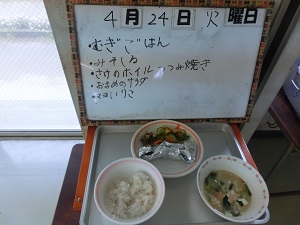 4月24日火曜日
・むぎごはん
・みそしる
・さけのホイルつつみ焼き
・おまめのサラダ